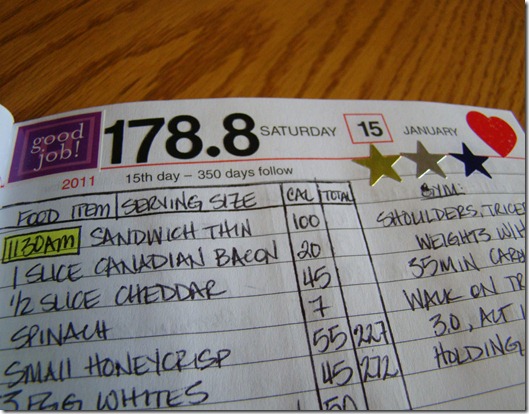 good job!
178.8 SATURDAY 15 JANUARY
2011 15th day – 350 days follow
FOOD ITEM SERVING SIZE CAL TOTAL GYM:
11:30AM SANDWICH THIN 100 SHOULDERS,
1 SLICE CANADIAN BACON 20 WEIGHTS
1/2 SLICE CHEDDAR 45 35MIN
SPINACH 7 WALK ON
SMALL HONEYCRISP 55 227 3.0, ALT
3 EGG WHITES 45 272 HOLDING